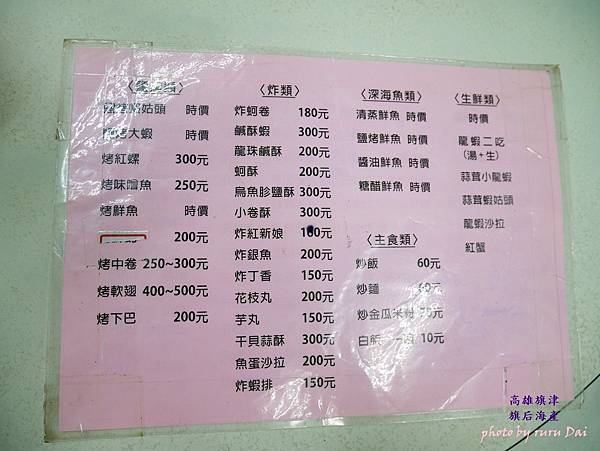 時價
烤大蝦 時價
烤紅螺 300元
烤味噌魚 250元
烤鮮魚 時價
200元
烤中卷 250~300元
烤軟翅 400~500元
烤下巴 200元
〈炸類〉
炸蚵卷 180元
鹹酥蝦 300元
龍珠鹹酥 200元
蚵酥 200元
烏魚胗鹽酥 300元
小卷酥 300元
炸紅新娘
炸銀魚 200元
炸丁香 150元
花枝丸 200元
芋丸 150元
干貝蒜酥 300元
魚蛋沙拉 200元
炸蝦排 150元
〈深海魚類〉
清蒸鮮魚 時價
鹽烤鮮魚 時價
醬油鮮魚 時價
糖醋鮮魚 時價
〈主食類〉
炒飯 60元
炒麵 60元
炒金瓜米粉 70元
白飯 10元
〈生鮮類〉
時價
龍蝦二吃
(湯+生)
蒜茸小龍蝦
蒜茸蝦姑頭
龍蝦沙拉
紅蟹
高雄旗津
旗后海產
photo by ruru Dai